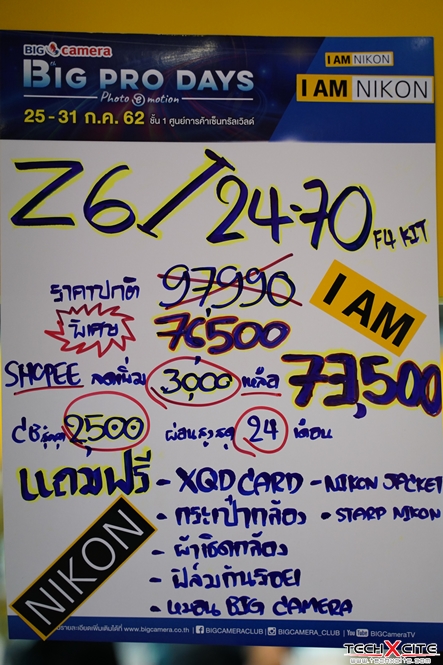 BIG camera
BIG PRO DAYS
Photo e motion
25-31 ก.ค. 62 ชั้น 1 ศูนย์การค้าเซ็นทรัลเวิลด์
I AM NIKON
I AM NIKON
Z6 / 24-70 F4 KIT
ราคาปกติ 97,990
I AM
พิเศษ 76500
SHOPEE ลดเพิ่ม 3,000 เหลือ 73,500
CB สูงสุด 2,500 ผ่อนสูงสุด 24 เดือน
แถมฟรี - XQD CARD - NIKON JACKET
- กระเป๋ากล้อง - STARP NIKON
- ผ้าเช็ดกล้อง
- ฟิล์มกันรอย
- หมอน BIG CAMERA
NIKON
รายละเอียดเพิ่มเติมได้ที่ www.bigcamera.co.th | BIGCAMERACLUB | BIGCAMERA_CLUB | You Tube BIGCameraTV
TECHXCITE
www.techxcite.com